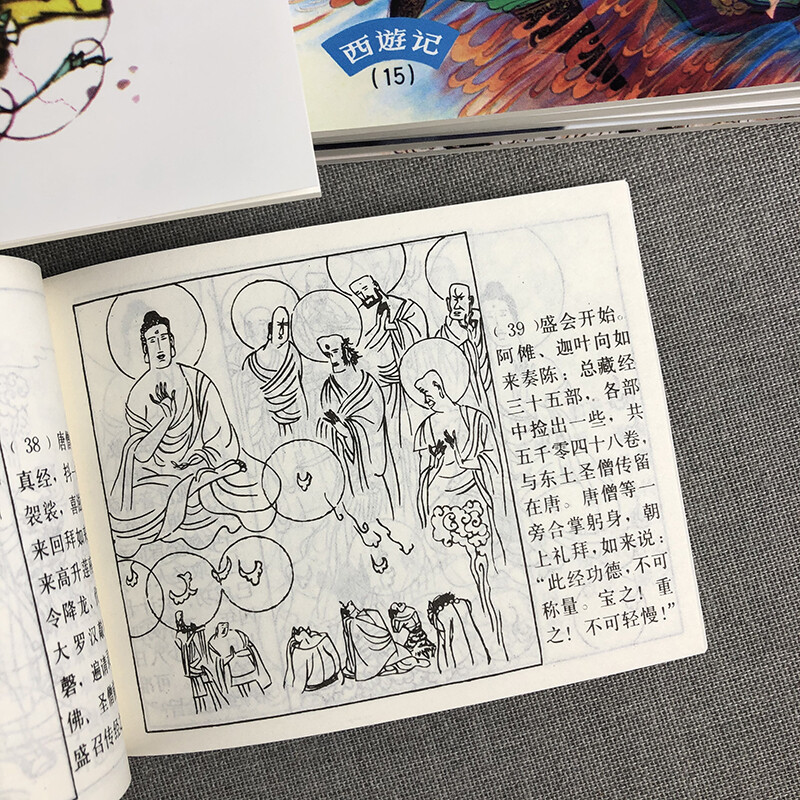 西遊记
(15)
(38)唐僧
真经，抖
袈裟，喜
来回拜如
来高升莲
令降龙、
大罗汉
磬，遍请
佛、圣僧
盛召传经
(39)盛会开始。
阿傩、迦叶向如
来奏陈：总藏经
三十五部，各部
中捡出一些，共
五千零四十八卷，
与东土圣僧传留
在唐。唐僧等一
旁合掌躬身，朝
上礼拜，如来说：
“此经功德，不可
称量。宝之！重
之！不可轻慢！”